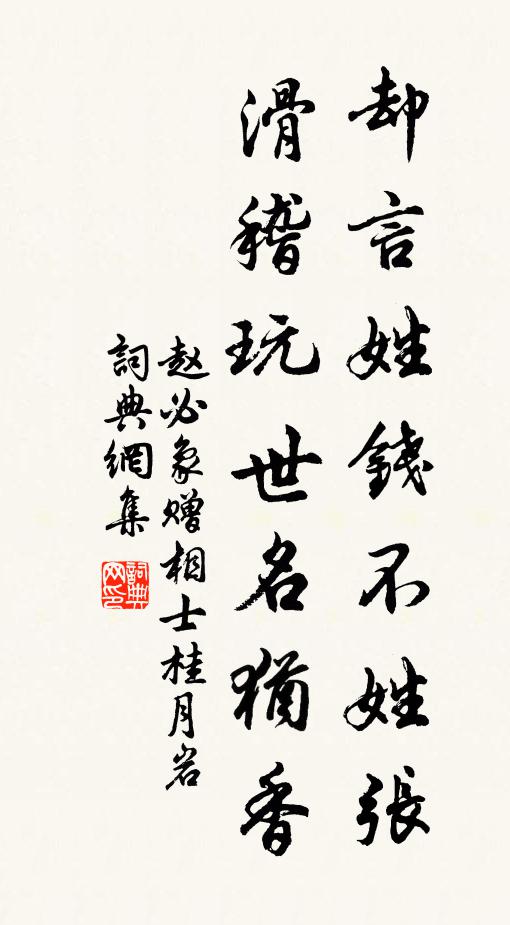 却言姓錢不姓張
滑稽玩世名猶香
赵必象赠相士桂月岩
詞典網集
詞典网印